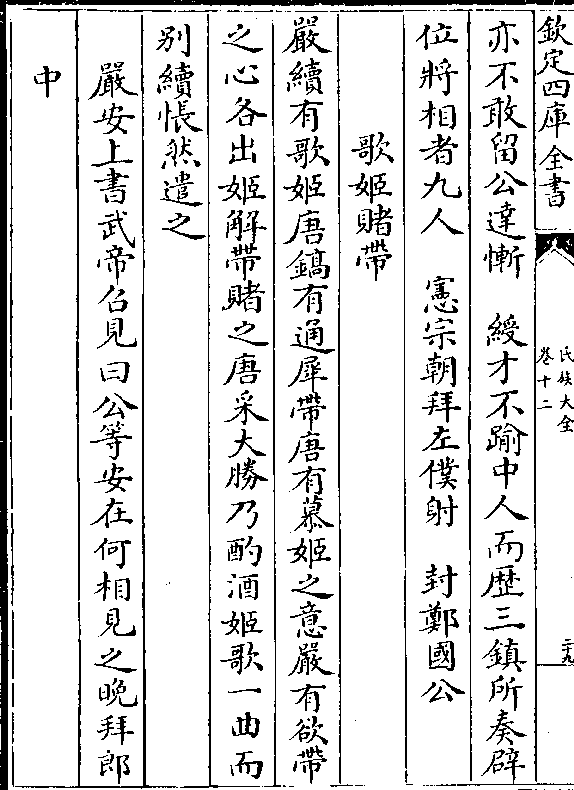 欽定四庫全書
氏族大全
卷十二
二十九
亦不敢留公達慚　綬才不踰中人而歴三鎮所奏辟
位將相者九人　憲宗朝拜左僕射　封鄭國公
歌姬賭帶
嚴續有歌姬唐鎬有通犀帶唐有慕姬之意嚴有欲帶
之心各出姬解帶賭之唐采大勝乃酌酒姬歌一曲而
别續悵然遣之
嚴安上書武帝召見曰公等安在何相見之晚拜郎
中